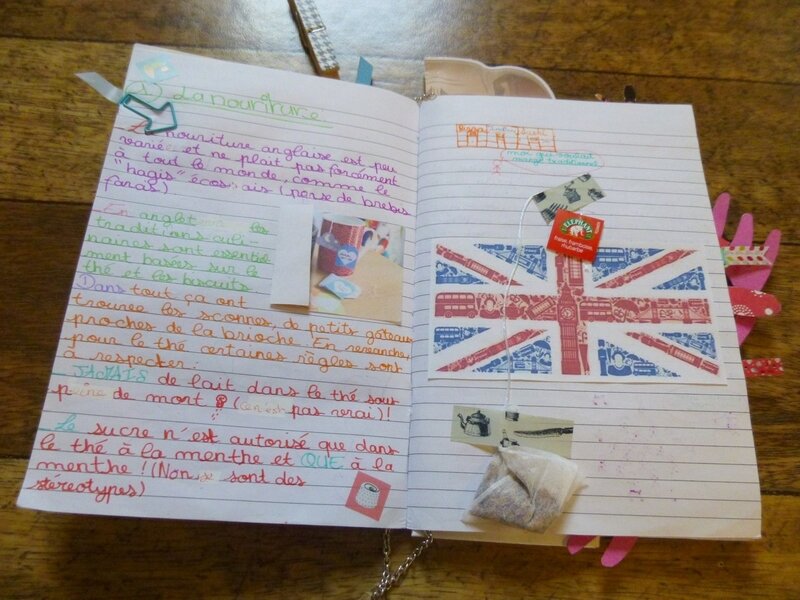 1) La nouriture
La nouriture anglaise est peu
variée et ne plait pas forcément
à tout le monde, comme le
"hagis" écossais (panse de brebis
En anglet les
traditions culi-
naires sont essentiel
ment basées sur le
thé et les biscuits
Dans tout ça ont
trouve les sconnes, de petits gateaux
proches de la brioche. En revanche,
pour le thé certaines règles sont
à respecter.
JAMAIS de lait dans le thé sous
peine de mort (c'est pas vrai)!
Le sucre n'est autorisé que dans
le thé à la menthe et QUE à la
menthe! (Non sont des
stereotypes)
moi qui voudrait
manger
ELEPHANT
fraise, framboise,
rhubarbe